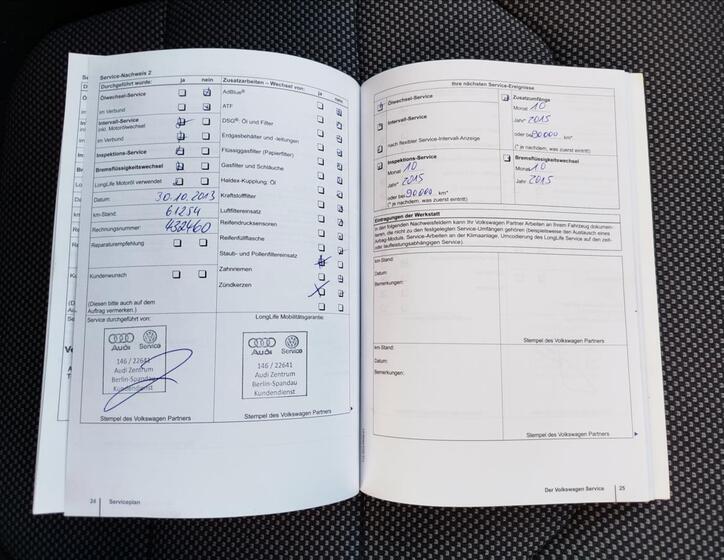 Service-Nachweis 2
Durchgeführt wurde: ja nein
Ölwechsel-Service
im Verbund
Intervall-Service
inkl. Motorölwechsel
im Verbund
Inspektions-Service
Bremsflüssigkeitswechsel
LongLife Motoröl verwendet
Datum: 30.10.2013
km-Stand: 61254
Rechnungsnummer: 432460
Reparaturempfehlung
Kundenwunsch
(Diesen bitte auch auf dem
Auftrag vermerken.)
Service durchgeführt von:
Audi Service
146 / 22641
Audi Zentrum
Berlin-Spandau
Kundendienst
Stempel des Volkswagen Partners
24 Serviceplan
Zusatzarbeiten – Wechsel von: ja nein
AdBlue®
ATF
DSG®: Öl und Filter
Erdgasbehälter und -leitungen
Flüssiggasfilter (Papierfilter)
Gasfilter und Schläuche
Haldex-Kupplung: Öl
Kraftstofffilter
Luftfiltereinsatz
Reifendrucksensoren
Reifenfüllflasche
Staub- und Pollenfiltereinsatz
Zahnriemen
Zündkerzen
LongLife Mobilitätsgarantie:
Audi Service
146 / 22641
Audi Zentrum
Berlin-Spandau
Kundendienst
Stempel des Volkswagen Partners
Ihre nächsten Service-Ereignisse
Ölwechsel-Service
Intervall-Service
nach flexibler Service-Intervall-Anzeige
Inspektions-Service
Monat 10
Jahr* 2015
oder bei 90000 km*
(* je nachdem, was zuerst eintritt)
Zusatzumfänge
Monat 10
Jahr* 2015
oder bei 90000 km*
(* je nachdem, was zuerst eintritt)
Bremsflüssigkeitswechsel
Monat 10
Jahr 2015
Eintragungen der Werkstatt
In den folgenden Nachweisfeldern kann Ihr Volkswagen Partner Arbeiten an Ihrem Fahrzeug dokumen-
tieren, die nicht zu den festgelegten Service-Umfängen gehören (beispielsweise den Austausch eines
Airbag-Moduls, Service-Arbeiten an der Klimaanlage, Umcodierung des LongLife Service auf den zeit-
oder laufleistungsabhängigen Service).
km-Stand:
Datum:
Bemerkungen:
Stempel des Volkswagen Partners
km-Stand:
Datum:
Bemerkungen:
Stempel des Volkswagen Partners
Der Volkswagen Service 25